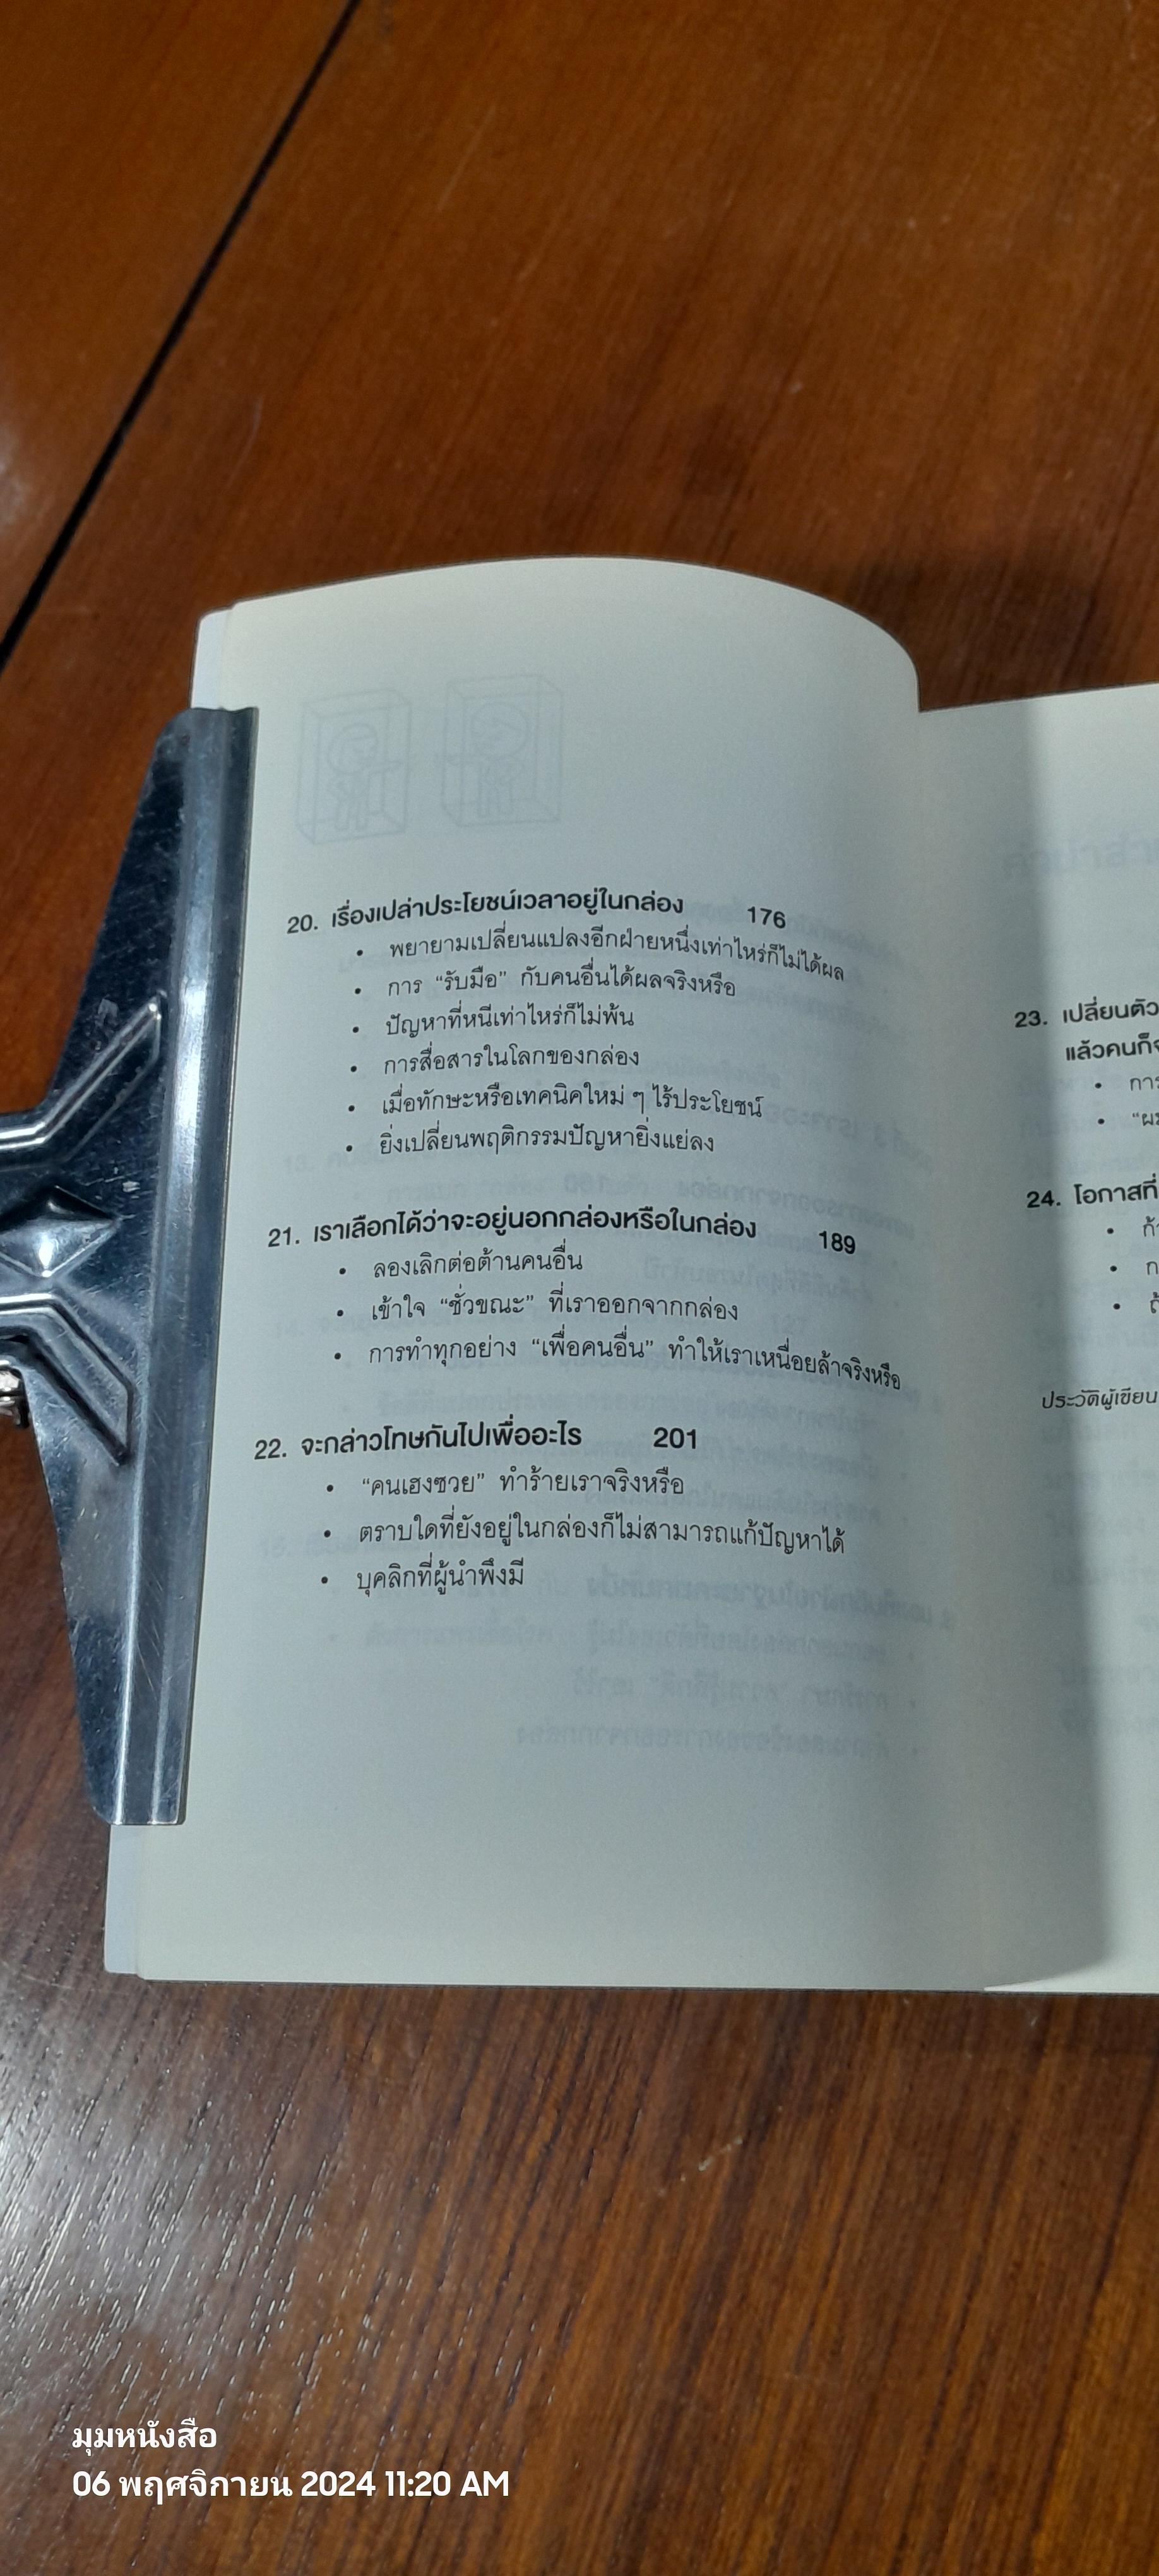 20. เรื่องเปล่าประโยชน์เวลาอยู่ในกล่อง 176
• พยายามเปลี่ยนแปลงอีกฝ่ายหนึ่งเท่าไหร่ก็ไม่ได้ผล
• การ “รับมือ” กับคนอื่นได้ผลจริงหรือ
• ปัญหาที่หนีเท่าไหร่ก็ไม่พ้น
• การสื่อสารในโลกของกล่อง
• เมื่อทักษะหรือเทคนิคใหม่ ๆ ไร้ประโยชน์
• ยิ่งเปลี่ยนพฤติกรรมปัญหายิ่งแย่ลง
21. เราเลือกได้ว่าจะอยู่นอกกล่องหรือในกล่อง 189
• ลองเลิกต่อต้านคนอื่น
• เข้าใจ “ชั่วขณะ” ที่เราออกจากกล่อง
• การทำทุกอย่าง “เพื่อคนอื่น” ทำให้เราเหนื่อยล้าจริงหรือ
22. จะกล่าวโทษกันไปเพื่ออะไร 201
• “คนเฮงซวย” ทำร้ายเราจริงหรือ
• ตราบใดที่ยังอยู่ในกล่องก็ไม่สามารถแก้ปัญหาได้
• บุคลิกที่ผู้นำพึงมี
23. เปลี่ยนตัว
แล้วคนก็
• การ
24. โอกาสที่
ประวัติผู้เขียน
มุมหนังสือ
06 พฤศจิกายน 2024 11:20 AM